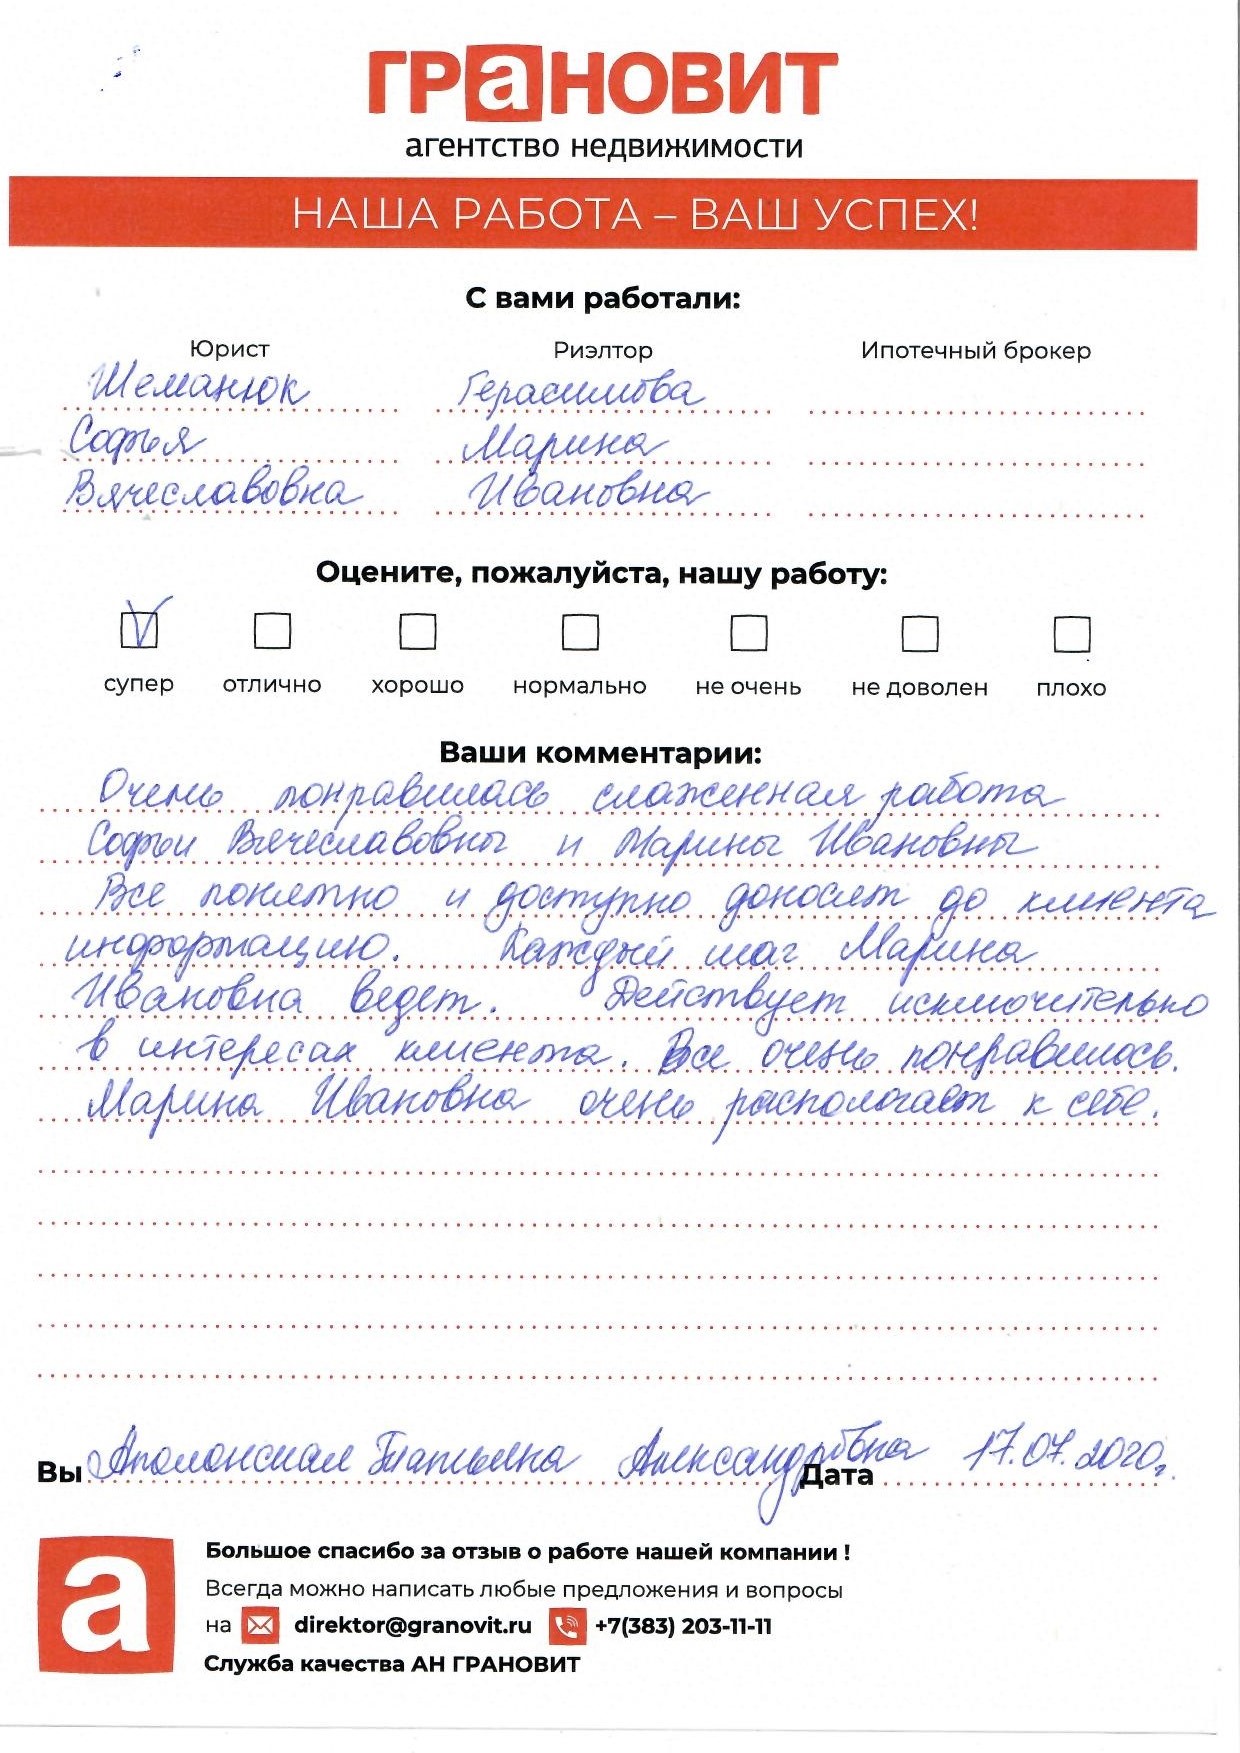 ГРаНОВИТ
агентство недвижимости
НАША РАБОТА – ВАШ УСПЕХ!
С вами работали:
Юрист Риэлтор Ипотечный брокер
Шеманюк Герасимова
Софья Марина
Вячеславовна Ивановна
Оцените, пожалуйста, нашу работу:
супер отлично хорошо нормально не очень не доволен плохо
Ваши комментарии:
Очень понравилась слаженная работа
Софьи Вячеславовны и Марины Ивановны
Все понятно и доступно доносят до клиента
информацию. Каждый шаг Марина
Ивановна ведет. Действует исключительно
в интересах клиента. Все очень понравилось.
Марина Ивановна очень распологает к себе.
Вы Аполонская Татьяна Александровна Дата 17.07.2020г.
а
Большое спасибо за отзыв о работе нашей компании !
Всегда можно написать любые предложения и вопросы
на direktor@granovit.ru +7(383) 203-11-11
Служба качества АН ГРАНОВИТ